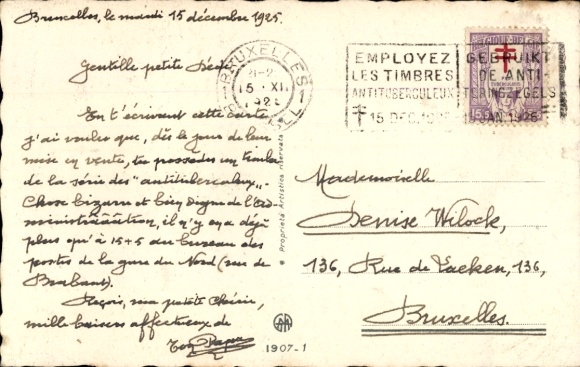 Bruxelles, le mardi 15 décembre 1925.
Gentille petite
En t'écrivant cette carte
j'ai voulu que, dès le jour de leur
mise en vente, tu possèdes un timbre
de la série des "antituberculeux".
Chose bizarre et bien digne de l'ad-
ministrââââtion, il n'y en a déjà
plus qu'à 15+5 au bureau des
postes de la gare du Nord (rue de
Brabant).
Reçois, ma petite Chérie,
mille baisers affectueux de
Ton Papa
BRUXELLES
15 XII
1925
EMPLOYEZ
LES TIMBRES
ANTITUBERCULEUX
15 DEC. 1925
GEBRUIKT
DE ANTI-
TERINGZEGELS
JAN. 1926
Proprietà Artistica Riservata
Mademoiselle
Denise Wilock,
136, Rue de Laeken, 136,
Bruxelles.
1907-1